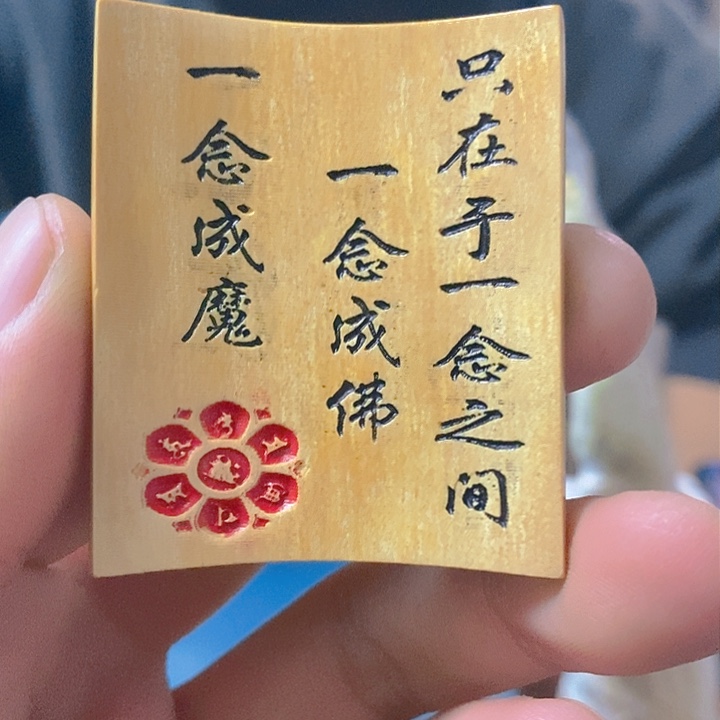 只在于一念之间
一念成佛
一念成魔